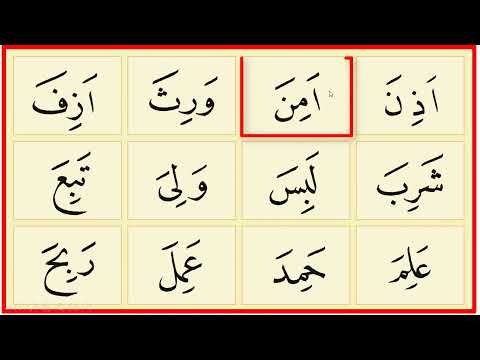 اَذِنَ اَمِنَ وَرِثَ اَزِفَ
شَرِبَ لَبِسَ وَلِىَ تَبِعَ
عَلِمَ حَمِدَ عَمِلَ رَبِحَ